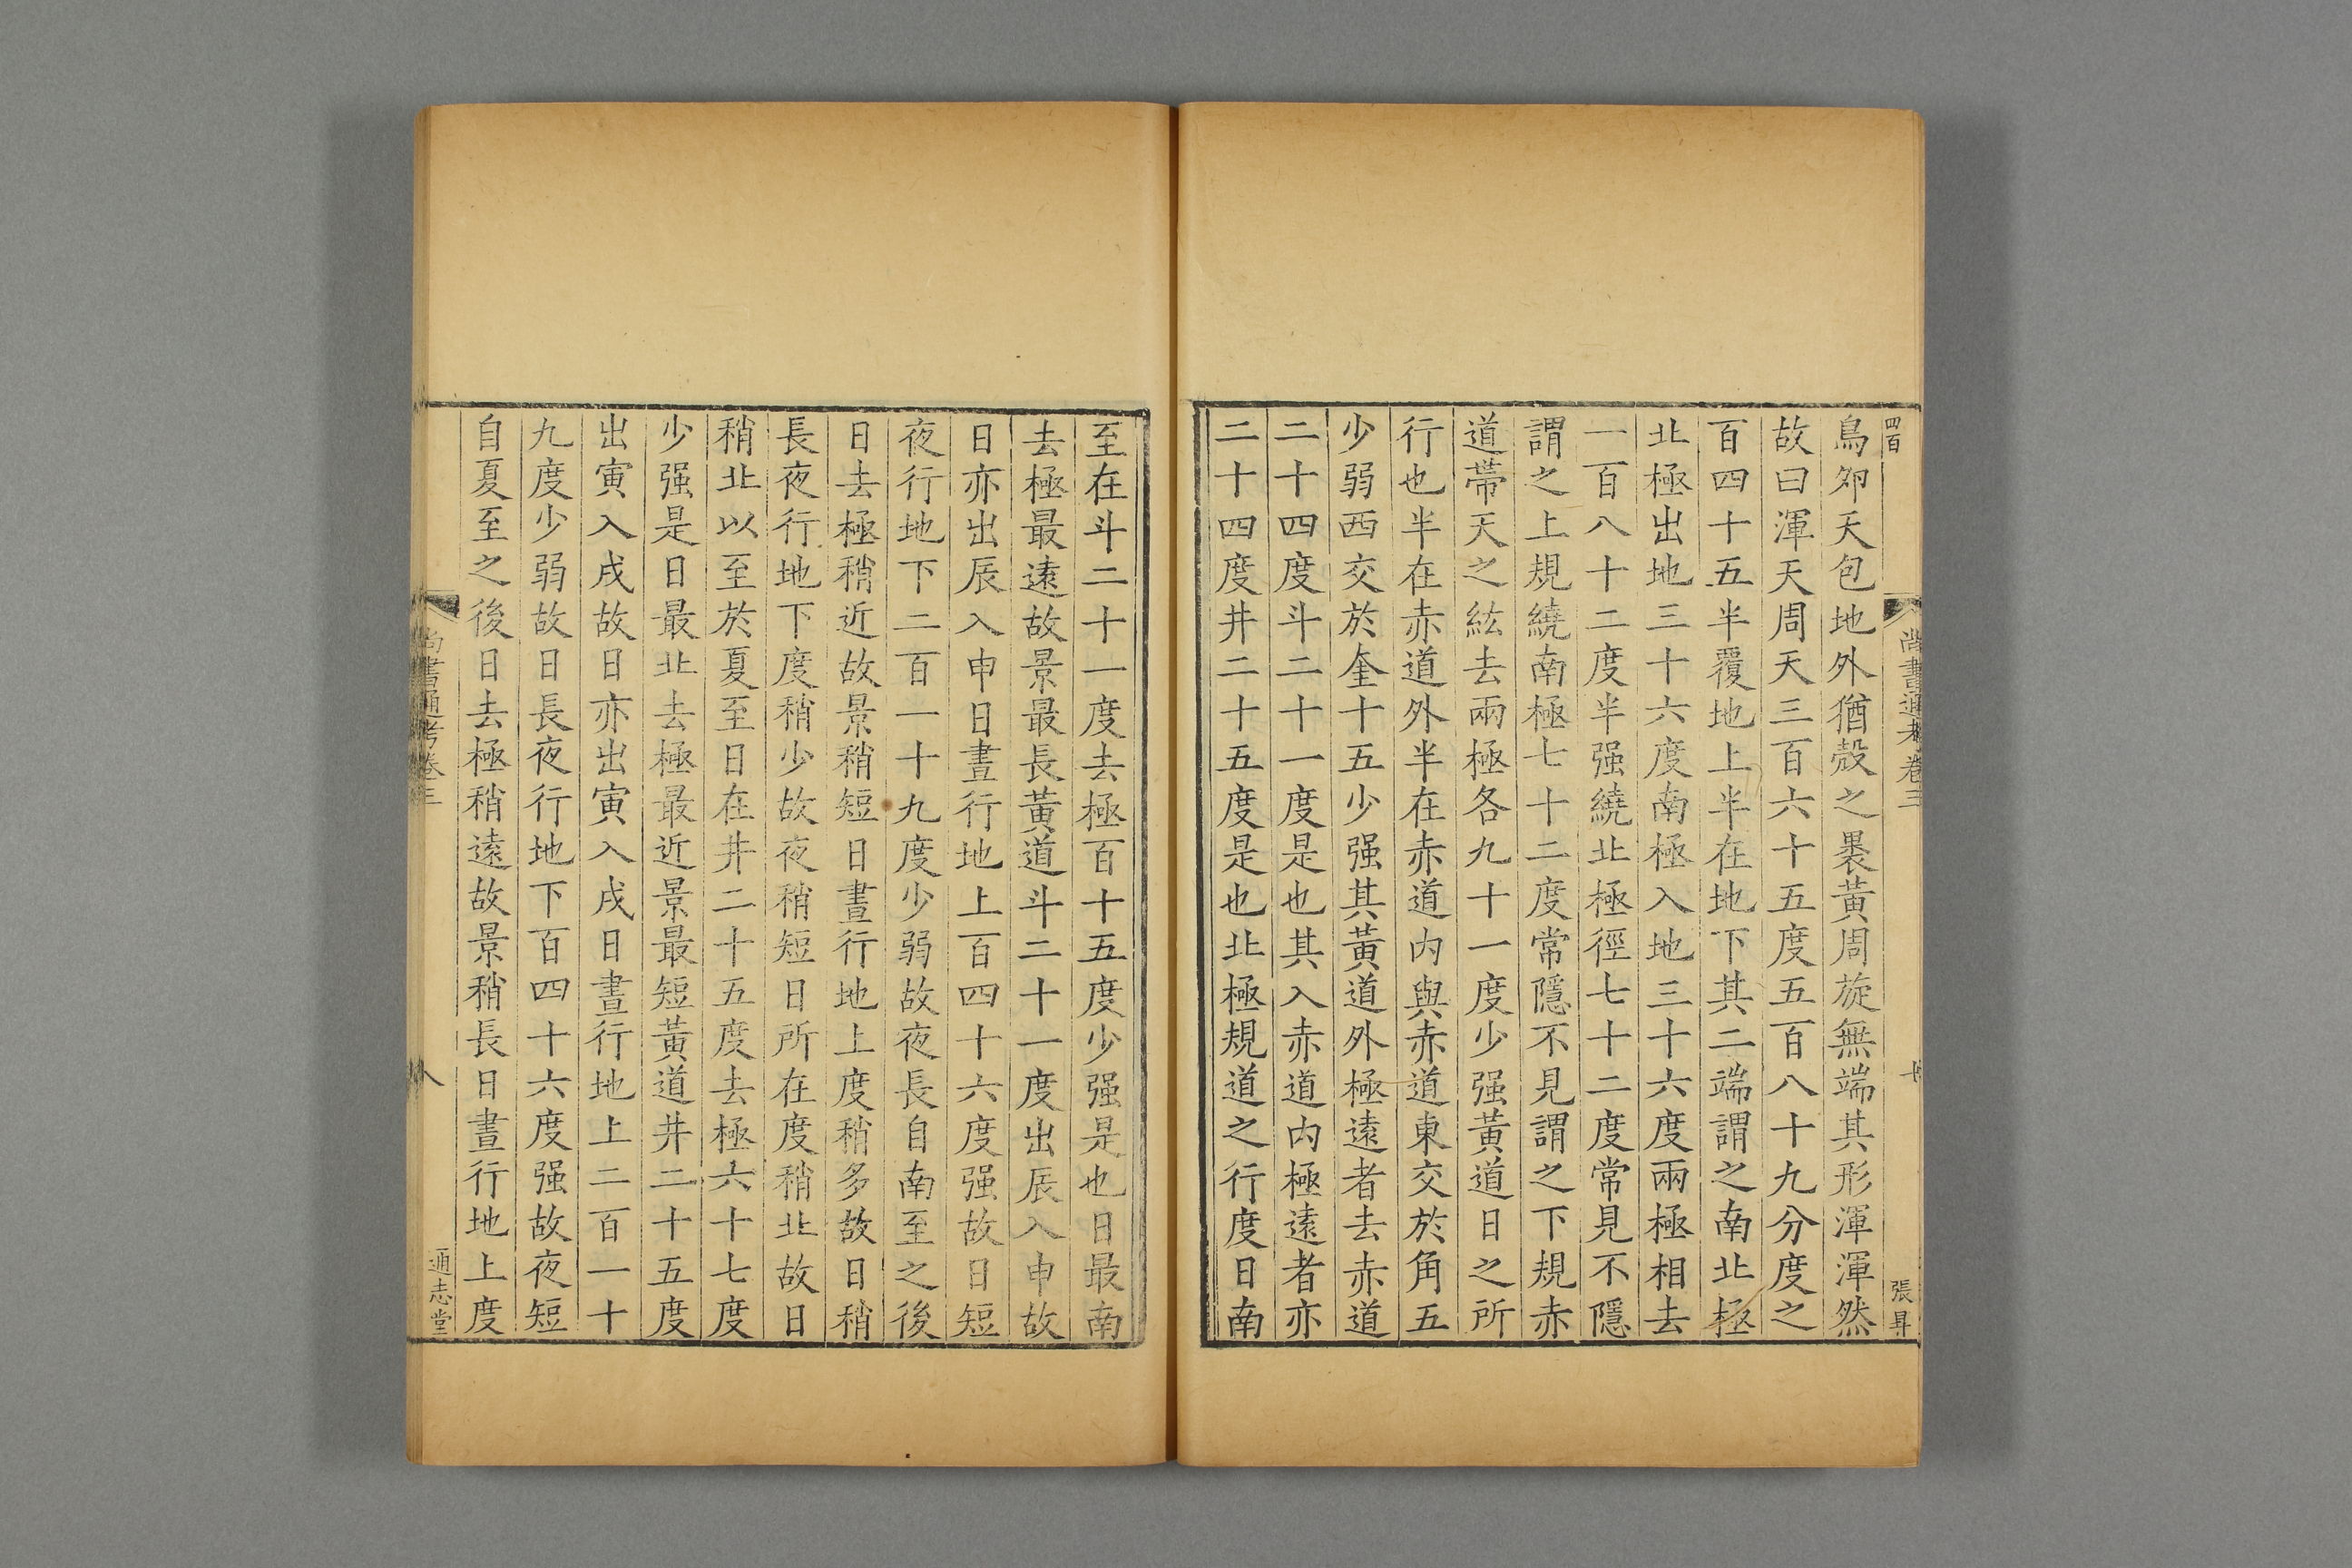 四百
尚書通考卷三
十
張昇
鳥夘天包地外猶殼之褁黃周旋無端其形渾渾然
故曰渾天周天三百六十五度五百八十九分度之
百四十五半覆地上半在地下其二端謂之南北極
北極出地三十六度南極入地三十六度兩極相去
一百八十二度半强繞北極徑七十二度常見不隱
謂之上規繞南極七十二度常隱不見謂之下規赤
道帶天之紘去兩極各九十一度少强黃道日之所
行也半在赤道外半在赤道內與赤道東交於角五
少弱西交於奎十五少强其黃道外極遠者去赤道
二十四度斗二十一度是也其入赤道內極遠者亦
二十四度井二十五度是也北極規道之行度日南
至在斗二十一度去極百十五度少强是也日最南
去極最遠故景最長黃道斗二十一度出辰入申故
日亦出辰入申日晝行地上百四十六度强故日短
夜行地下二百一十九度少弱故夜長自南至之後
日去極稍近故景稍短日晝行地上度稍多故日稍
長夜行地下度稍少故夜稍短日所在度稍北故日
稍北以至於夏至日在井二十五度去極六十七度
少强是日最北去極最近景最短黃道井二十五度
出寅入戌故日亦出寅入戌日晝行地上二百一十
九度少弱故日長夜行地下百四十六度强故夜短
自夏至之後日去極稍遠故景稍長日晝行地上度
尚書通考卷三
八
通志堂